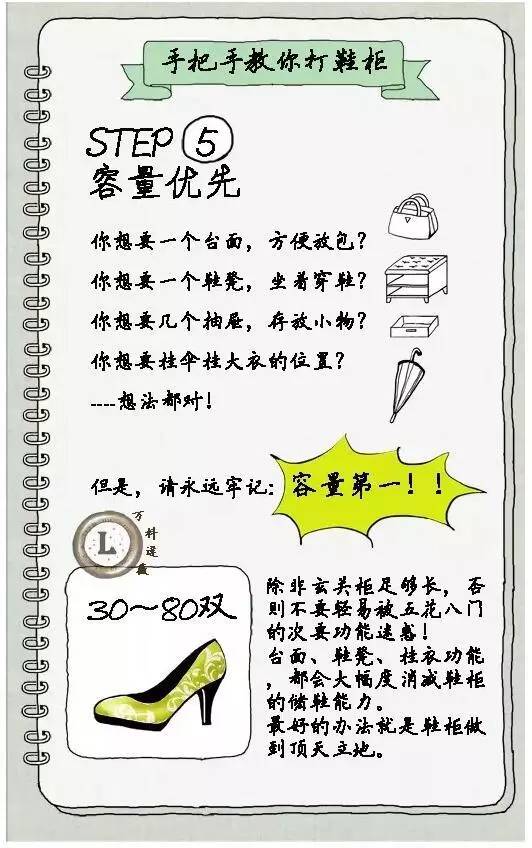 手把手教你打鞋柜
STEP ⑤
容量优先
你想要一个台面，方便放包？
你想要一个鞋凳，坐着穿鞋？
你想要几个抽屉，存放小物？
你想要挂伞挂大衣的位置？
----想法都对！
但是，请永远牢记：容量第一！！
万
科
逯
薇
L
30～80双
除非玄关柜足够长，否
则不要轻易被五花八门
的次要功能迷惑！
台面、鞋凳、挂衣功能
，都会大幅度消减鞋柜
的储鞋能力。
最好的办法就是鞋柜做
到顶天立地。